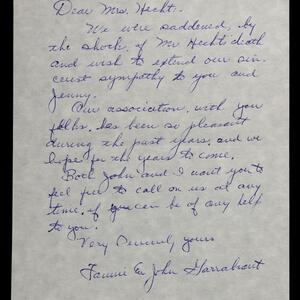 Dear Mrs. Hecht.
We were saddened, by
the shock, of Mr Hechts death
and wish to extend our sin-
cerest sympathy to you and
Jenny.
Our association, with you
folks, has been so pleasant
during the past years, and we
hope for the years to come.
Both John and I want you to
feel free to call on us at any
time, if we can be of any help
to you.
Very Sincerely yours
Fannie &